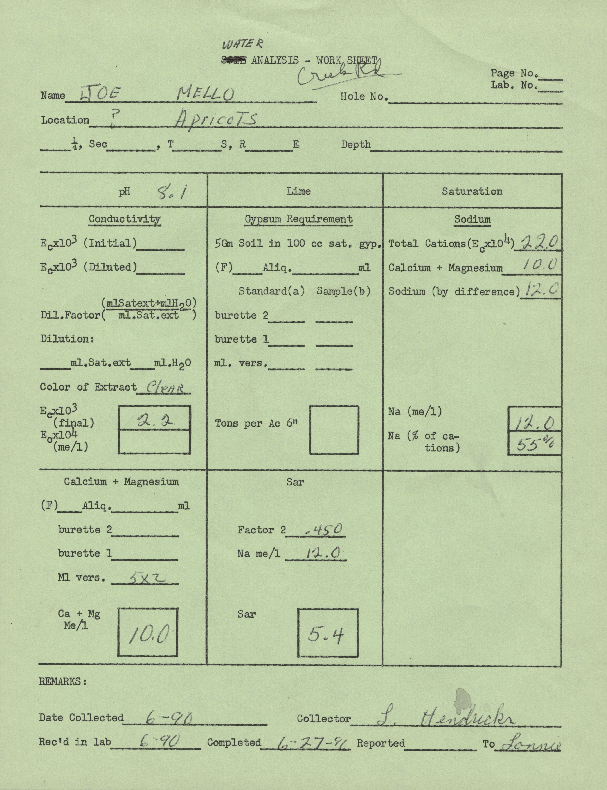 WATER
ANALYSIS - WORK SHEET
Creek Rd
Page No.
Lab. No.
Name JOE MELLO Hole No.
Location ? Apricots
¼, Sec , T S, R E Depth
pH 8.1 Lime Saturation
Conductivity Gypsum Requirement Sodium
Ecx10³ (Initial) 5Gm Soil in 100 cc sat. gyp. Total Cations(Ecx10⁴) 22.0
Ecx10³ (Diluted) (F) Aliq. ml Calcium + Magnesium 10.0
Standard(a) Sample(b) Sodium (by difference) 12.0
(mlSatext+mlH₂O)
Dil.Factor( ml.Sat.ext ) burette 2
Dilution: burette 1
ml.Sat.ext ml.H₂O ml. vers.
Color of Extract Clear
Ecx10³ (final) 2.2 Tons per Ac 6" Na (me/l) 12.0
Ecx10⁴ (me/l) Na (% of cations) 55%
Calcium + Magnesium Sar
(F) Aliq. ml
burette 2 Factor 2 .450
burette 1 Na me/l 12.0
Ml vers. 5x2
Ca + Mg Me/l 10.0 Sar 5.4
REMARKS:
Date Collected 6-90 Collector L. Hendricks
Rec'd in lab 6-90 Completed 6-27-90 Reported To Lonnie